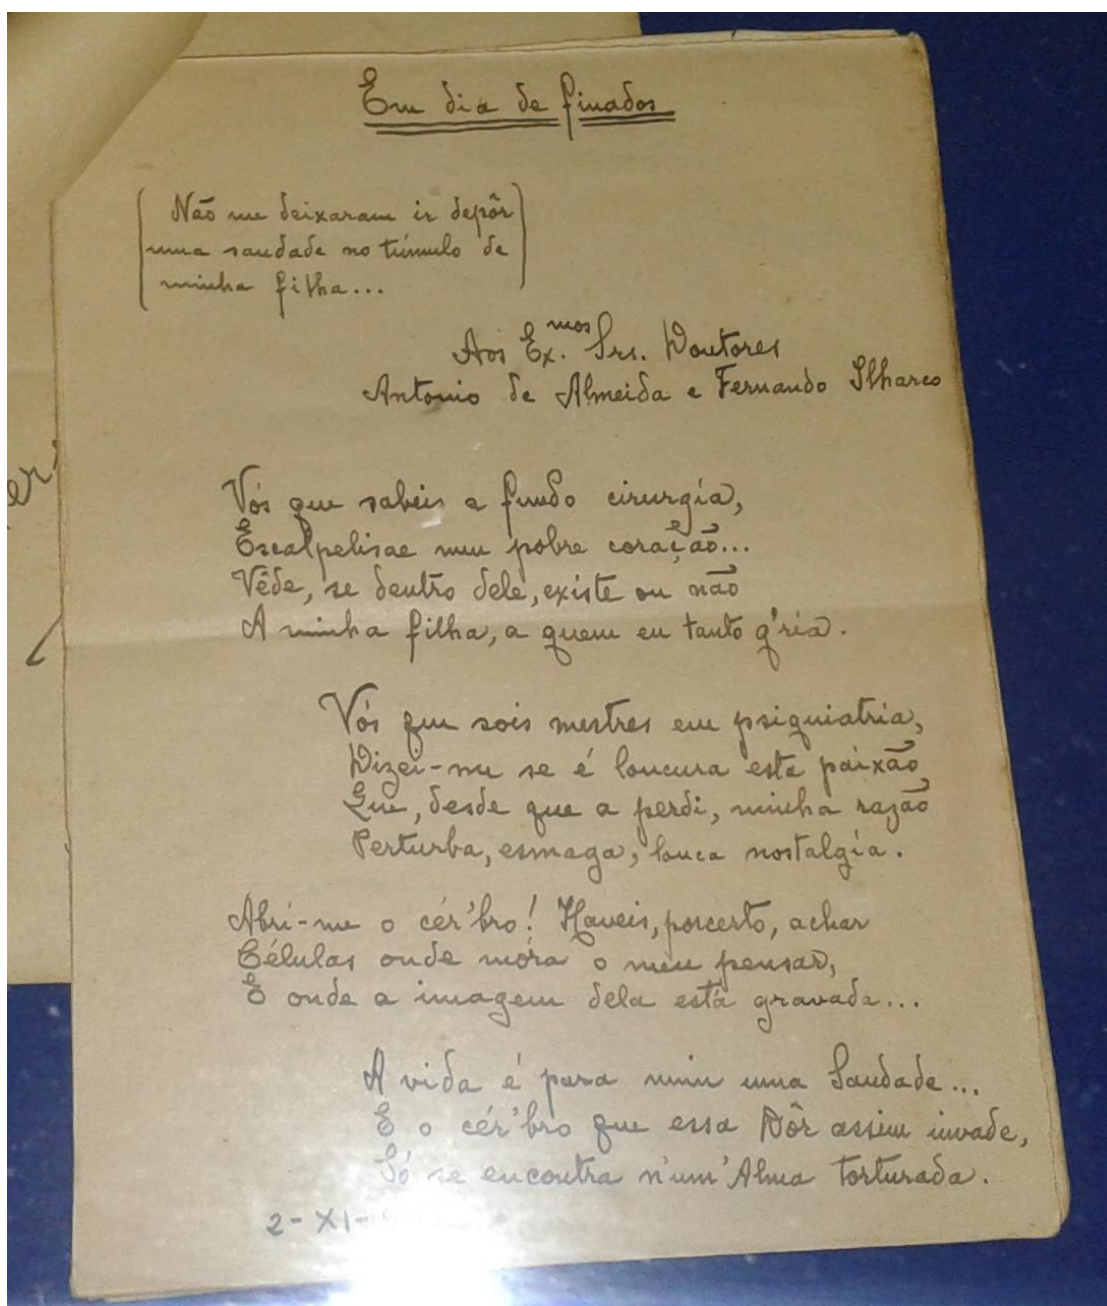 Em dia de finados
Não me deixaram ir depôr
uma saudade no túmulo de
minha filha...
Aos Ex.mos Srs. Doutores
Antonio de Almeida e Fernando Ilharco
Vós que sabeis a fundo cirurgía,
Escalpelisae meu pobre coração...
Vêde, se dentro dele, existe ou não
A minha filha, a quem eu tanto q'ria.
Vós que sois mestres em psiquiatria,
Dizei-me se é loucura esta paixão
Que, desde que a perdi, minha razão
Perturba, esmaga, louca nostalgía.
Abri-me o cér'bro! Haveis, porcerto, achar
Células onde móra o meu pensar,
E onde a imagem dela está gravada...
A vida é para mim uma Saudade...
E o cér'bro que essa Dôr assim invade,
Só se encontra n'um'Alma torturada.
2-XI-